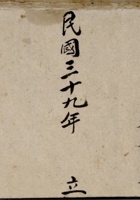 民國三十九年 立